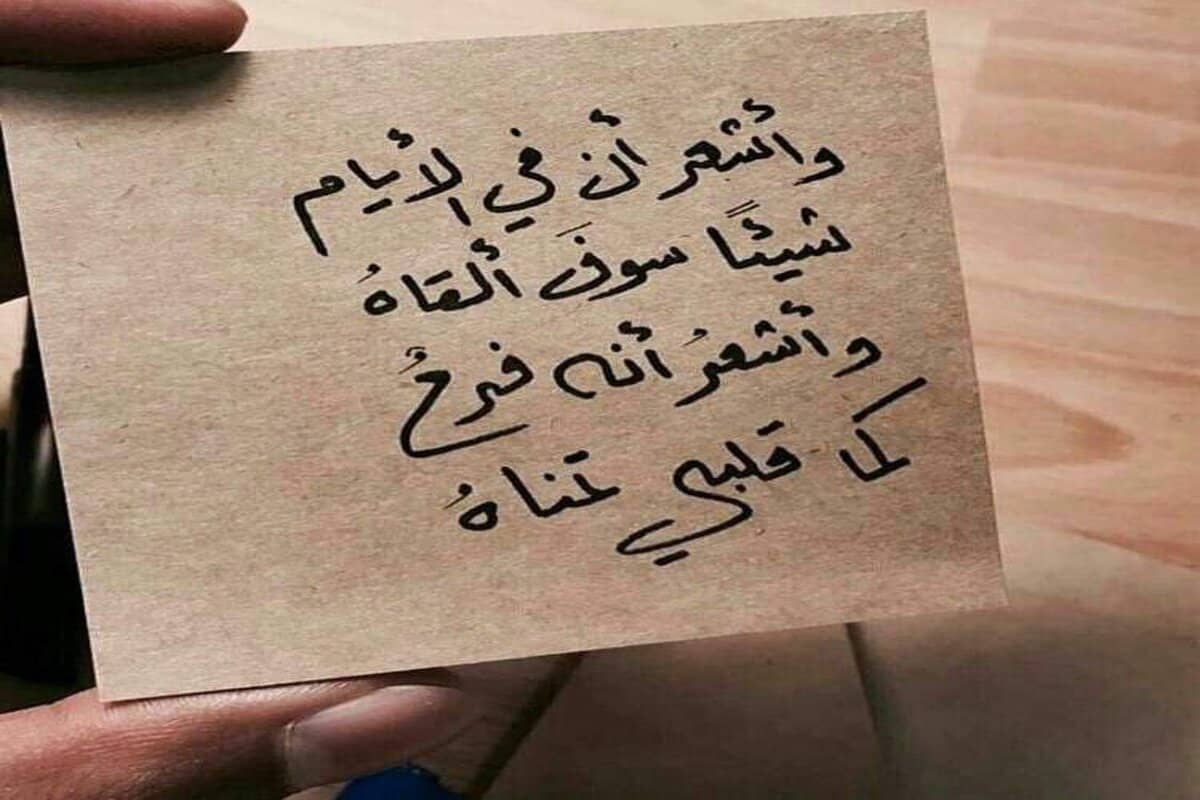 وأشعر أن في الأيام
شيئًا سوفَ ألقاهُ
وأشعرُ أنه فرحٌ
كما قلبي تمناهُ